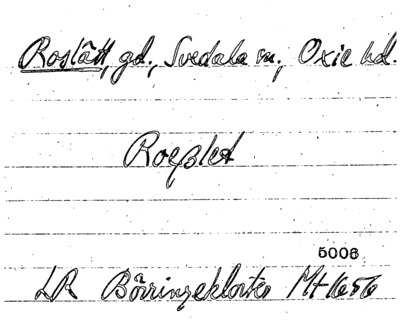 Roslätt, gd., Svedala sn., Oxie hd.
Roeßlet
5006
LR Börringekloster Mt 1656